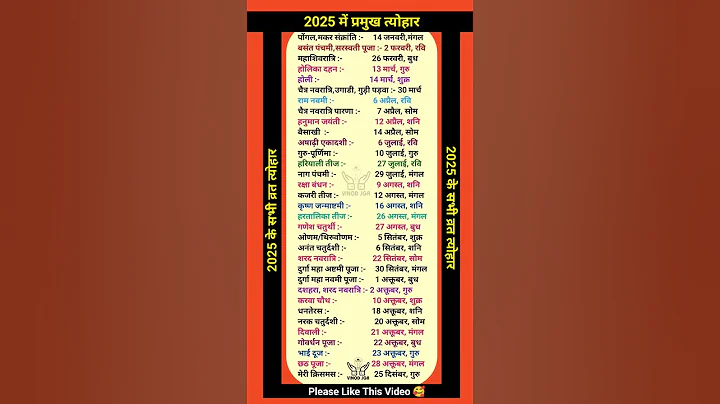 2025 में प्रमुख त्योहार
पोंगल,मकर संक्रांति :- 14 जनवरी,मंगल
बसंत पंचमी,सरस्वती पूजा :- 2 फरवरी, रवि
महाशिवरात्रि :- 26 फरवरी, बुध
होलिका दहन :- 13 मार्च, गुरु
होली :- 14 मार्च, शुक्र
चैत्र नवरात्रि,उगाडी, गुड़ी पड़वा :- 30 मार्च
राम नवमी :- 6 अप्रैल, रवि
चैत्र नवरात्रि पारणा :- 7 अप्रैल, सोम
हनुमान जयंती :- 12 अप्रैल, शनि
बैसाखी :- 14 अप्रैल, सोम
अषाढ़ी एकादशी :- 6 जुलाई, रवि
गुरु-पूर्णिमा :- 10 जुलाई, गुरु
हरियाली तीज :- 27 जुलाई, रवि
नाग पंचमी :- 29 जुलाई, मंगल
रक्षा बंधन :- 9 अगस्त, शनि
कजरी तीज :- 12 अगस्त, मंगल
कृष्ण जन्माष्टमी :- 16 अगस्त, शनि
हरतालिका तीज :- 26 अगस्त, मंगल
गणेश चतुर्थी :- 27 अगस्त, बुध
ओणम/थिरुवोणम :- 5 सितंबर, शुक्र
अनंत चतुर्दशी :- 6 सितंबर, शनि
शरद नवरात्रि :- 22 सितंबर, सोम
दुर्गा महा अष्टमी पूजा :- 30 सितंबर, मंगल
दुर्गा महा नवमी पूजा :- 1 अक्टूबर, बुध
दशहरा, शरद नवरात्रि :- 2 अक्टूबर, गुरु
करवा चौथ :- 10 अक्टूबर, शुक्र
धनतेरस :- 18 अक्टूबर, शनि
नरक चतुर्दशी :- 20 अक्टूबर, सोम
दिवाली :- 21 अक्टूबर, मंगल
गोवर्धन पूजा :- 22 अक्टूबर, बुध
भाई दूज :- 23 अक्टूबर, गुरु
छठ पूजा :- 28 अक्टूबर, मंगल
मेरी क्रिसमस :- 25 दिसंबर, गुरु
2025 के सभी व्रत त्योहार
2025 के सभी व्रत त्योहार
VINOD JGR
VINOD JGR
Please Like This Video 🥰